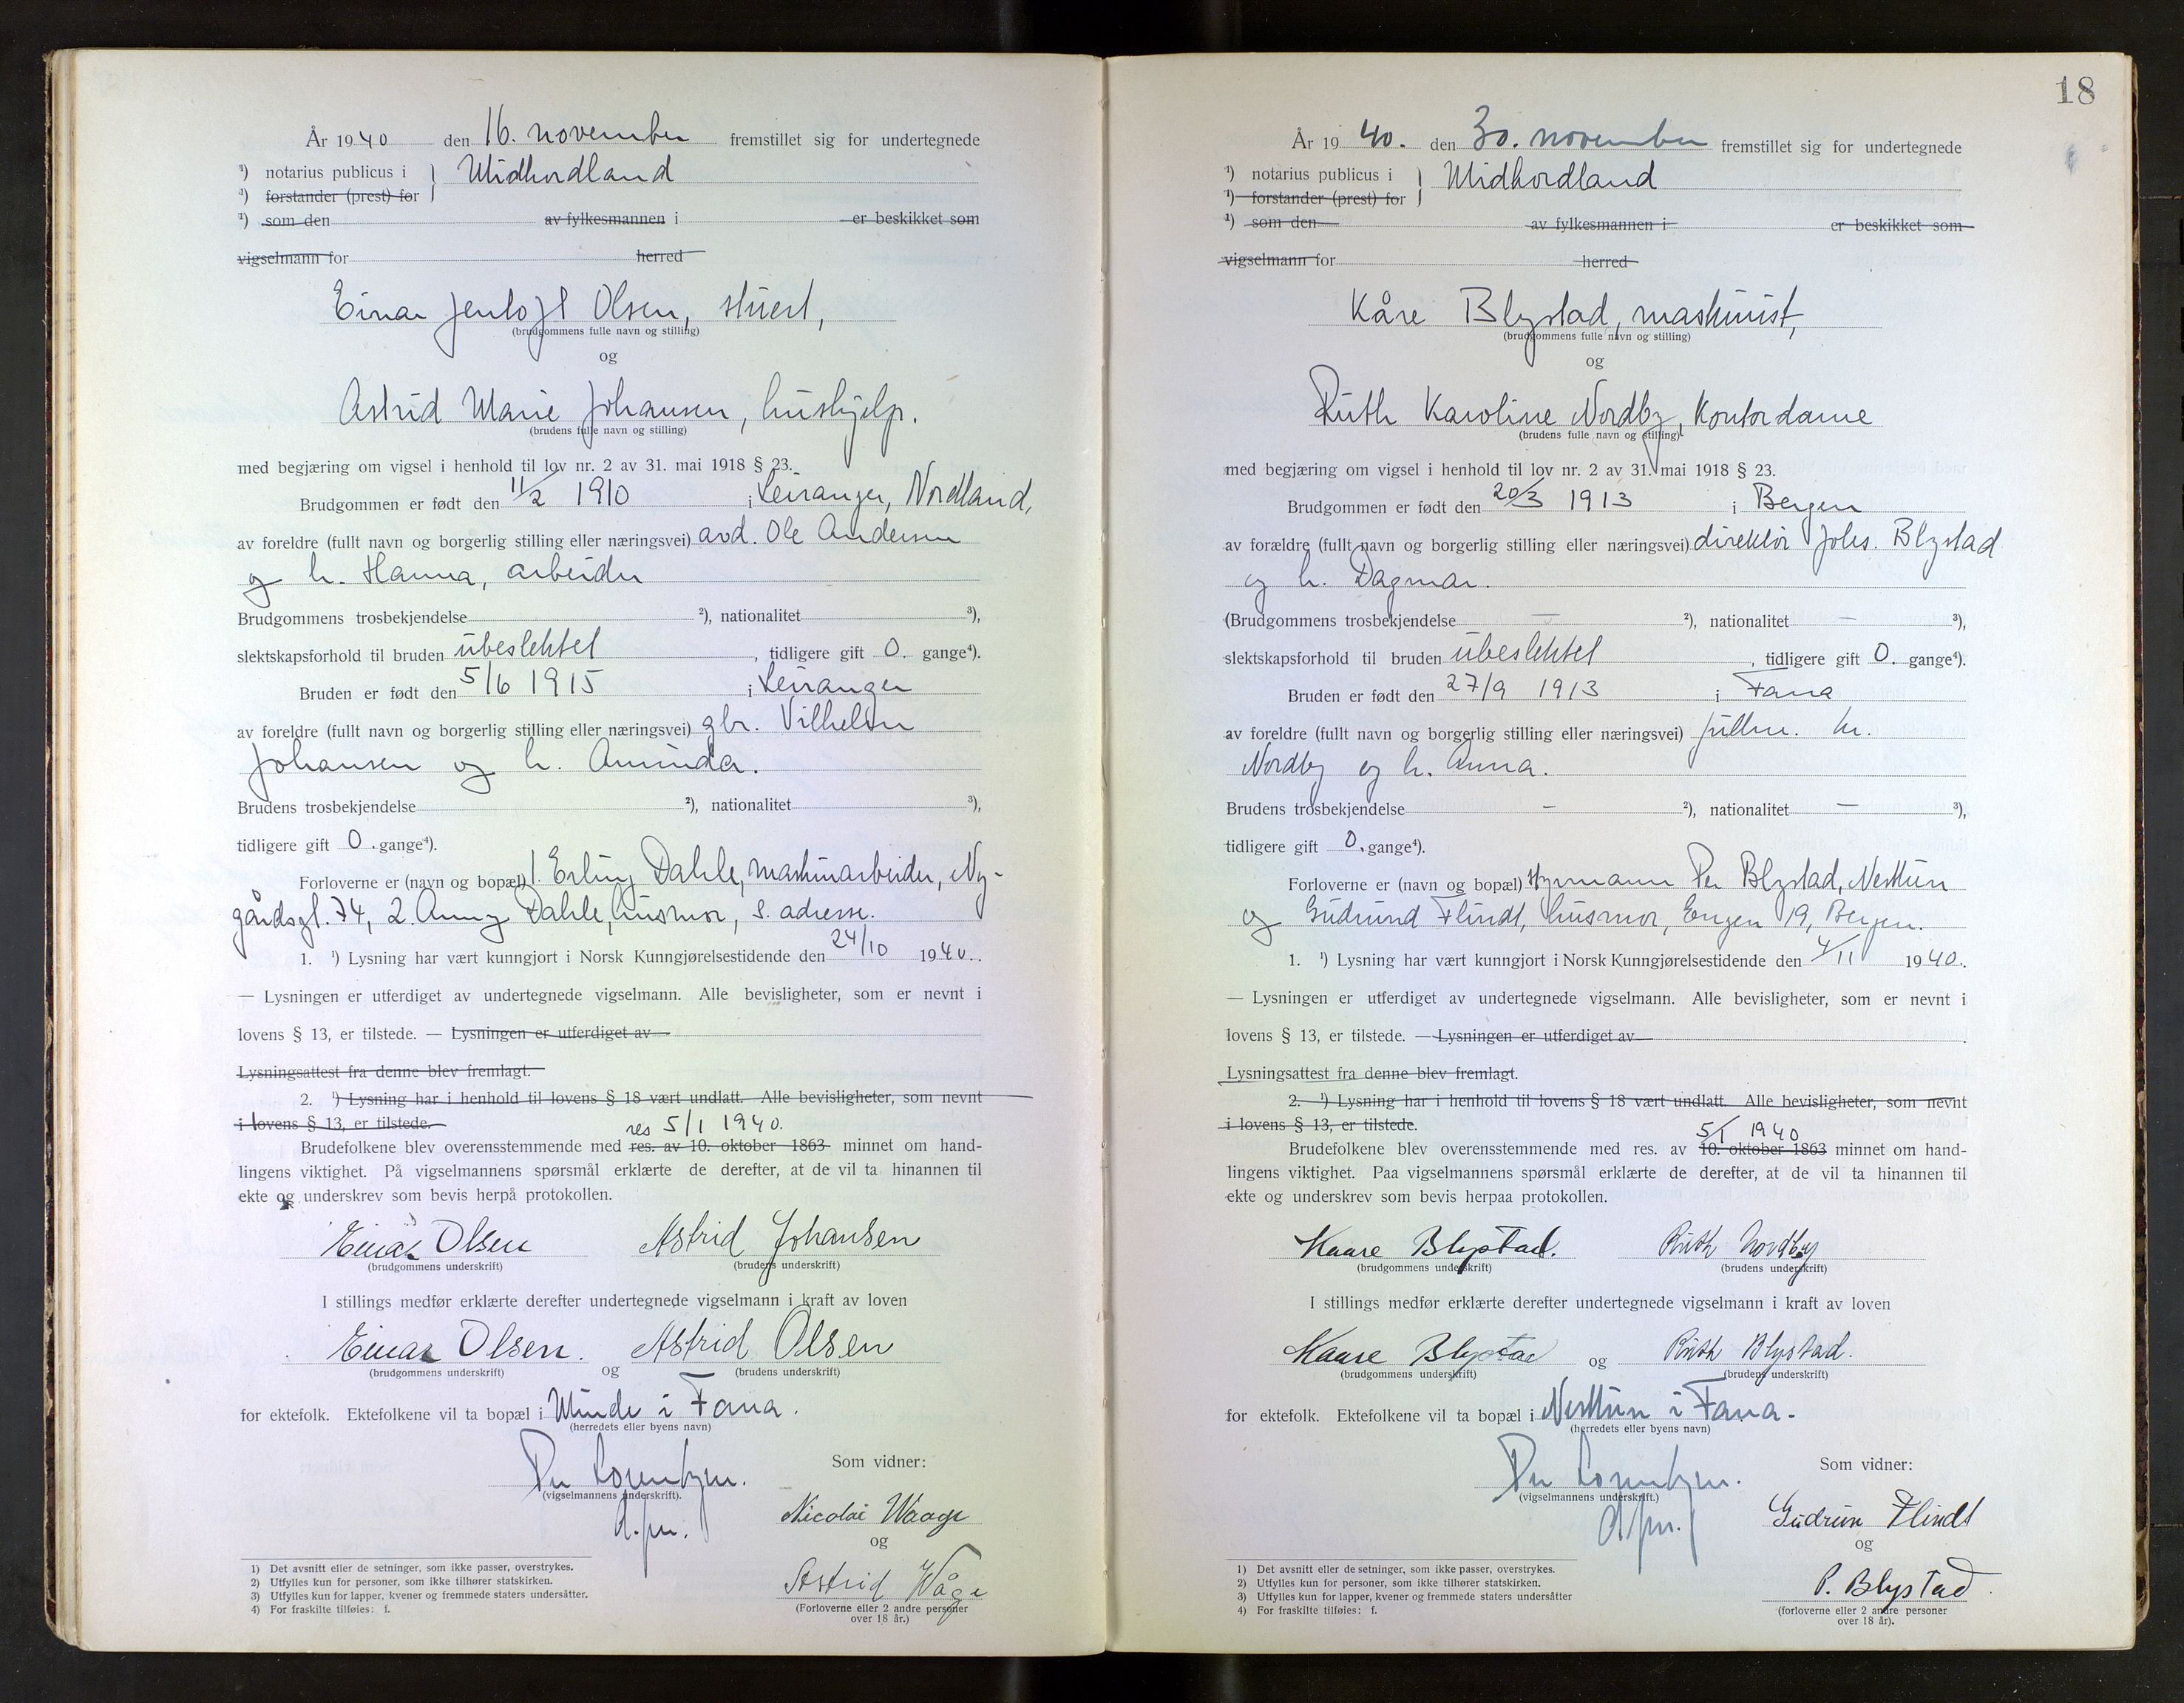 År 1940 den 16. november fremstillet sig for undertegnede
¹) notarius publicus i } Midhordland
¹) forstander (prest) for
¹) som den av fylkesmannen i er beskikket som
vigselmann for herred
Einar Jentoft Olsen, stuert,
(brudgommens fulle navn og stilling)
og
Astrid Marie Johansen, hushjelp.
(brudens fulle navn og stilling)
med begjæring om vigsel i henhold til lov nr. 2 av 31. mai 1918 § 23.
Brudgommen er født den 11/2 1910 i Leiranger, Nordland,
av foreldre (fullt navn og borgerlig stilling eller næringsvei) avd. Ole Andersen
og h. Hanna, arbeider
Brudgommens trosbekjendelse ²), nationalitet ³),
slektskapsforhold til bruden ubeslektet, tidligere gift 0. gange⁴).
Bruden er født den 5/6 1915 i Leiranger
av foreldre (fullt navn og borgerlig stilling eller næringsvei) gbr. Vilhelm
Johansen og h. Aminda.
Brudens trosbekjendelse ²), nationalitet ³),
tidligere gift 0. gange⁴).
Forloverne er (navn og bopæl) 1. Erling Dahle, maskinarbeider, Ny-
gårdsgt. 74, 2. Anny Dahle, husmor, s. adresse.
1. ¹) Lysning har vært kunngjort i Norsk Kunngjørelsestidende den 24/10 1940.
— Lysningen er utferdiget av undertegnede vigselmann. Alle bevisligheter, som er nevnt i
lovens § 13, er tilstede. — Lysningen er utferdiget av
Lysningsattest fra denne blev fremlagt.
2. ¹) Lysning har i henhold til lovens § 18 vært undlatt. Alle bevisligheter, som nevnt
i lovens § 13, er tilstede.
res 5/1 1940.
Brudefolkene blev overensstemmende med res. av 10. oktober 1863 minnet om hand-
lingens viktighet. På vigselmannens spørsmål erklærte de derefter, at de vil ta hinannen til
ekte og underskrev som bevis herpå protokollen.
Einar Olsen Astrid Johansen
(brudgommens underskrift) (brudens underskrift)
I stillings medfør erklærte derefter undertegnede vigselmann i kraft av loven
Einar Olsen. og Astrid Olsen
(brudgommens underskrift) (brudens underskrift)
for ektefolk. Ektefolkene vil ta bopæl i Minde i Fana.
(herredets eller byens navn)
Som vidner:
Per
(vigselmannens underskrift).
Nicolai Waage
og
Astrid Våge
(Forloverne eller 2 andre personer
over 18 år.)
1) Det avsnitt eller de setninger, som ikke passer, overstrykes.
2) Utfylles kun for personer, som ikke tilhører statskirken.
3) Utfylles kun for lapper, kvener og fremmede staters undersåtter.
4) For fraskilte tilføies: f.
18
År 1940. den 30. november fremstillet sig for undertegnede
¹) notarius publicus i } Midhordland
¹) forstander (prest) for
¹) som den av fylkesmannen i er beskikket som
vigselmann for herred
Kåre Blystad, maskinist,
(brudgommens fulle navn og stilling)
og
Ruth Karoline Nordby, kontordame
(brudens fulle navn og stilling)
med begjæring om vigsel i henhold til lov nr. 2 av 31. mai 1918 § 23.
Brudgommen er født den 20/3 1913 i Bergen
av forældre (fullt navn og borgerlig stilling eller næringsvei) direktør Johs. Blystad
og h. Dagmar.
(Brudgommens trosbekjendelse — ²), nationalitet — ³),
slektskapsforhold til bruden ubeslektet, tidligere gift 0. gange⁴).
Bruden er født den 27/9 1913 i Fana
av foreldre (fullt navn og borgerlig stilling eller næringsvei)
Nordby og h. Anna.
Brudens trosbekjendelse — ²), nationalitet — ³),
tidligere gift 0. gange⁴).
Forloverne er (navn og bopæl) Styrmann Per Blystad, Nesttun
og Gudrund Flindt, husmor, Engen 19, Bergen.
1. ¹) Lysning har vært kunngjort i Norsk Kunngjørelsestidende den 4/11 1940.
— Lysningen er utferdiget av undertegnede vigselmann. Alle bevisligheter, som er nevnt i
lovens § 13, er tilstede. — Lysningen er utferdiget av
Lysningsattest fra denne blev fremlagt.
2. ¹) Lysning har i henhold til lovens § 18 vært undlatt. Alle bevisligheter, som nevnt
i lovens § 13, er tilstede.
5/1 1940
Brudefolkene blev overensstemmende med res. av 10. oktober 1863 minnet om hand-
lingens viktighet. Paa vigselmannens spørsmål erklærte de derefter, at de vil ta hinannen til
ekte og underskrev som bevis herpaa protokollen.
Kaare Blystad. Ruth Nordby
(brudgommens underskrift) (brudens underskrift)
I stillings medfør erklærte derefter undertegnede vigselmann i kraft av loven
Kaare Blystad og Ruth Blystad.
(brudgommens underskrift) (brudens underskrift)
for ektefolk. Ektefolkene vil ta bopæl i Nesttun i Fana.
(herredets eller byens navn)
Som vidner:
Per
(vigselmannens underskrift.)
Gudrun Flindt
og
P. Blystad
(forloverne eller 2 andre personer
over 18 år).
1) Det avsnitt eller de setninger, som ikke passer, overstrykes.
2) Utfylles kun for personer, som ikke tilhører statskirken.
3) Utfylles kun for lapper, kvener og fremmede staters undersåtter
4) For fraskilte tilføies: f.